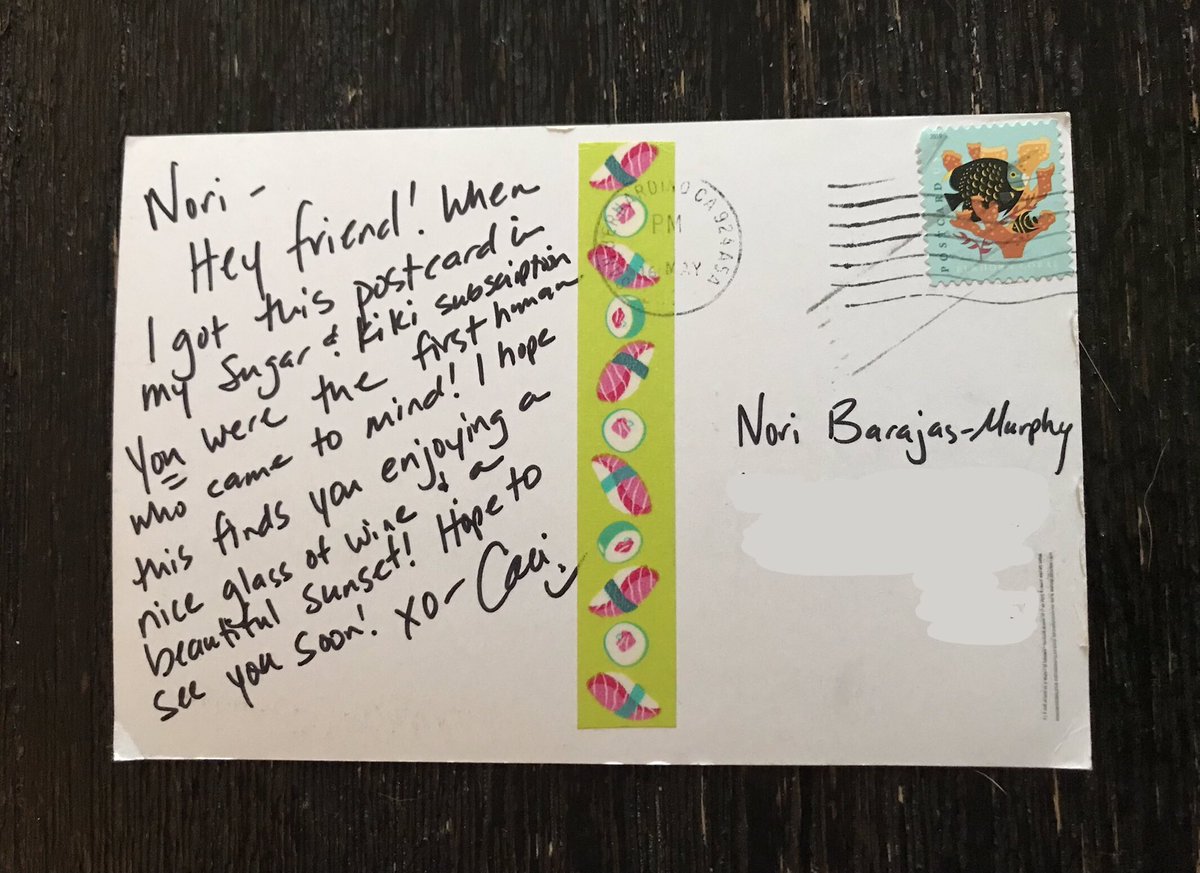 Nori -
Hey friend! When
I got this postcard in
my Sugar & Kiki subscription
You were the first human
who came to mind! I hope
this finds you enjoying a
nice glass of wine & a
beautiful sunset! Hope to
see you soon! XO - Caci
BERNARDINO CA 924 A5A
PM
MAY
2019
POSTCARD
Nori Barajas-Murphy